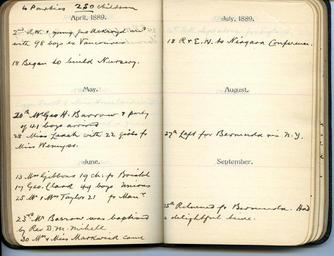 to Parkies 250 children
April, 1889.
with 98 boys to Vancouver
18 Began to build Nursery.
May.
20th Mr Geo H. Barrow & party
of 49 boys arrived
28 Miss Leach with 22 girls fr
Miss Wemyss.
June.
13 Mrs Gibbons 19 ch. fr Bristol
17 Geo. Clark 44 boys
25 Mr & Mrs Taylor 21 fr Manr
23rd Mr Barrow was baptised
by Rev D. M. Mihell
30 Mr & Miss Markwood came
July, 1889.
18 R & E. H. to Niagara Conference.
August.
27th Left for Bermuda via N.Y.
September.
25th Returned fr Bermuda. Had
a delightful time.